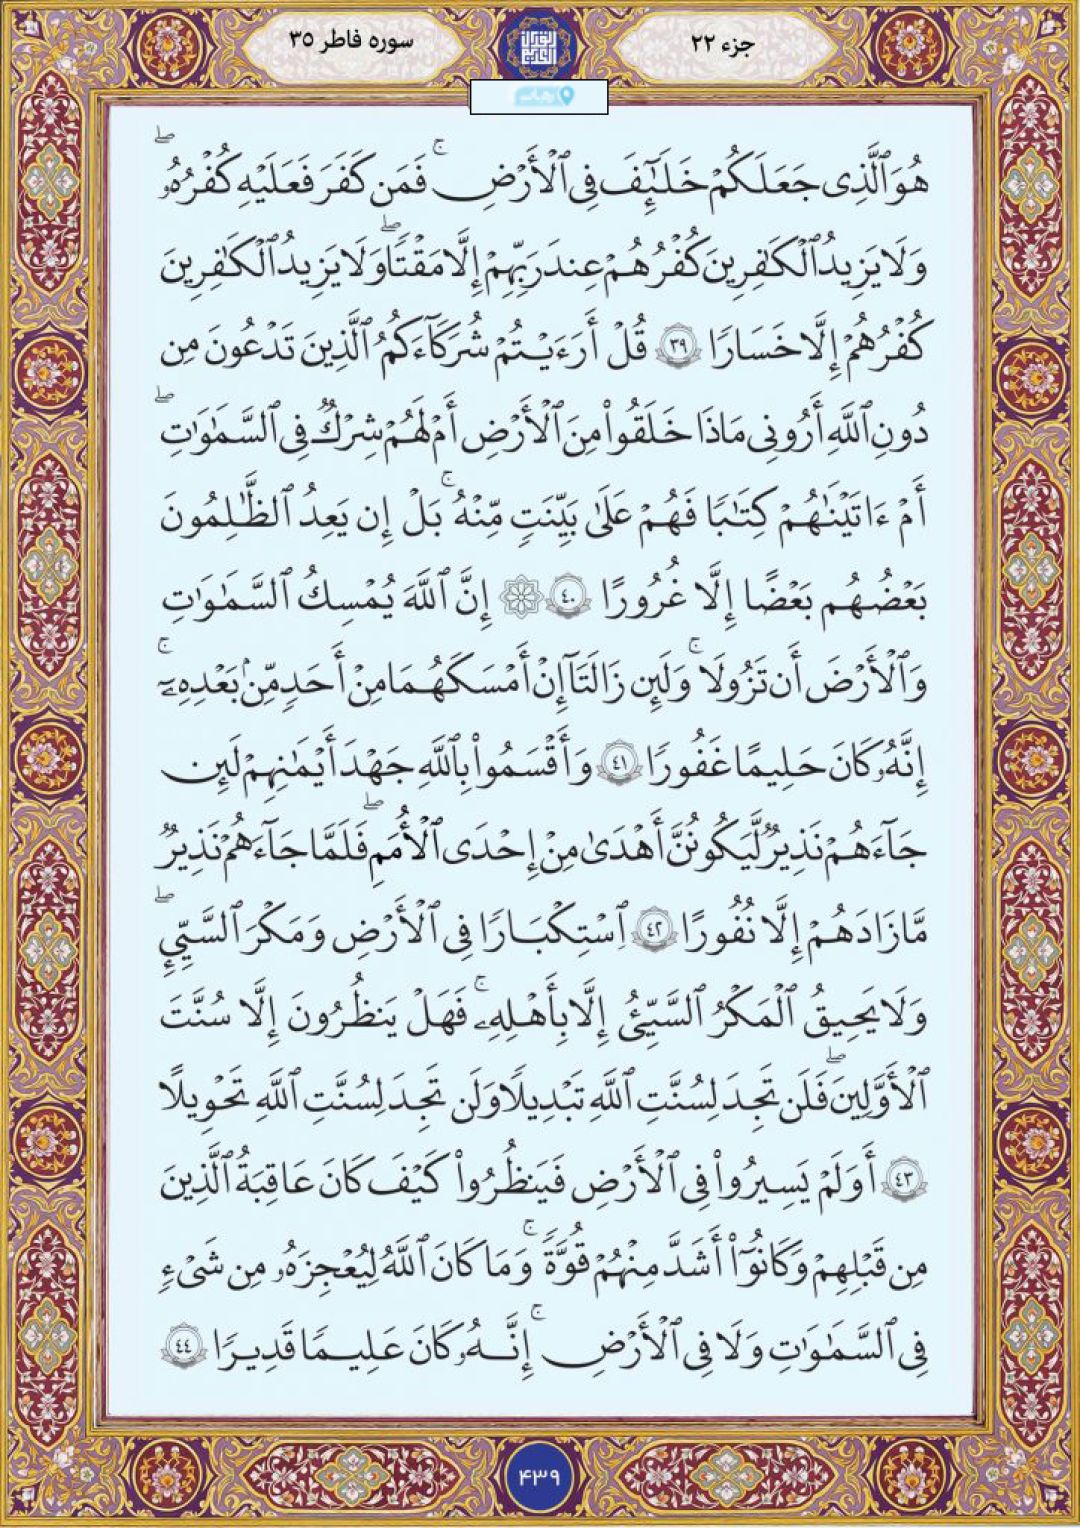 جزء ٢٢
سوره فاطر ٣٥
هُوَ ٱلَّذِى جَعَلَكُمْ خَلَـٰٓئِفَ فِى ٱلْأَرْضِ ۚ فَمَن كَفَرَ فَعَلَيْهِ كُفْرُهُۥ ۖ
وَلَا يَزِيدُ ٱلْكَـٰفِرِينَ كُفْرُهُمْ عِندَ رَبِّهِمْ إِلَّا مَقْتًا ۖ وَلَا يَزِيدُ ٱلْكَـٰفِرِينَ
كُفْرُهُمْ إِلَّا خَسَارًا ٣٩ قُلْ أَرَءَيْتُمْ شُرَكَآءَكُمُ ٱلَّذِينَ تَدْعُونَ مِن
دُونِ ٱللَّهِ أَرُونِى مَاذَا خَلَقُوا۟ مِنَ ٱلْأَرْضِ أَمْ لَهُمْ شِرْكٌ فِى ٱلسَّمَـٰوَٰتِ ۖ
أَمْ ءَاتَيْنَـٰهُمْ كِتَـٰبًا فَهُمْ عَلَىٰ بَيِّنَتٍ مِّنْهُ ۚ بَلْ إِن يَعِدُ ٱلظَّـٰلِمُونَ
بَعْضُهُم بَعْضًا إِلَّا غُرُورًا ٤٠ ۞ إِنَّ ٱللَّهَ يُمْسِكُ ٱلسَّمَـٰوَٰتِ
وَٱلْأَرْضَ أَن تَزُولَا ۚ وَلَئِن زَالَتَآ إِنْ أَمْسَكَهُمَا مِنْ أَحَدٍ مِّنۢ بَعْدِهِۦٓ ۚ
إِنَّهُۥ كَانَ حَلِيمًا غَفُورًا ٤١ وَأَقْسَمُوا۟ بِٱللَّهِ جَهْدَ أَيْمَـٰنِهِمْ لَئِن
جَآءَهُمْ نَذِيرٌ لَّيَكُونُنَّ أَهْدَىٰ مِنْ إِحْدَى ٱلْأُمَمِ ۖ فَلَمَّا جَآءَهُمْ نَذِيرٌ
مَّا زَادَهُمْ إِلَّا نُفُورًا ٤٢ ٱسْتِكْبَارًا فِى ٱلْأَرْضِ وَمَكْرَ ٱلسَّيِّئِ ۖ
وَلَا يَحِيقُ ٱلْمَكْرُ ٱلسَّيِّئُ إِلَّا بِأَهْلِهِۦ ۚ فَهَلْ يَنظُرُونَ إِلَّا سُنَّتَ
ٱلْأَوَّلِينَ ۖ فَلَن تَجِدَ لِسُنَّتِ ٱللَّهِ تَبْدِيلًا وَلَن تَجِدَ لِسُنَّتِ ٱللَّهِ تَحْوِيلًا
٤٣ أَوَلَمْ يَسِيرُوا۟ فِى ٱلْأَرْضِ فَيَنظُرُوا۟ كَيْفَ كَانَ عَـٰقِبَةُ ٱلَّذِينَ
مِن قَبْلِهِمْ وَكَانُوٓا۟ أَشَدَّ مِنْهُمْ قُوَّةً ۚ وَمَا كَانَ ٱللَّهُ لِيُعْجِزَهُۥ مِن شَىْءٍ
فِى ٱلسَّمَـٰوَٰتِ وَلَا فِى ٱلْأَرْضِ ۚ إِنَّهُۥ كَانَ عَلِيمًا قَدِيرًا ٤٤
۴۳۹